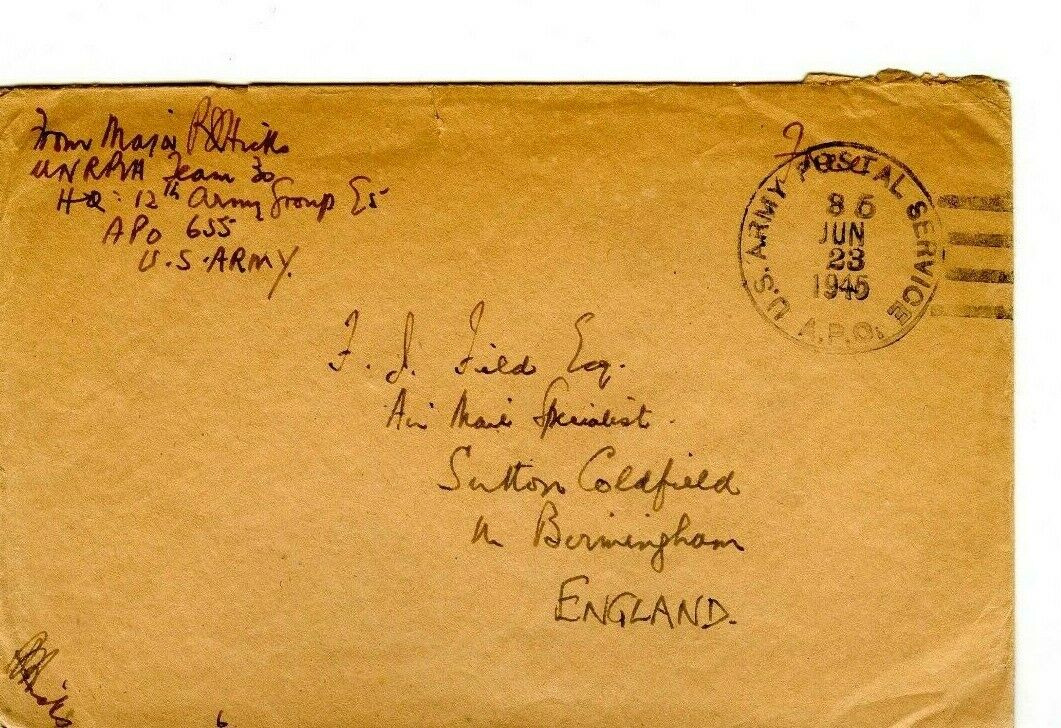 From Major R Hicks
UNRRA Team 30
HQ: 12th Army Group G5
APO 655
U.S. ARMY.
Free
U.S. ARMY POSTAL SERVICE
A.P.O.
JUN
23
1945
F. J. Field Esq.
Air Mail Specialist.
Sutton Coldfield
Nr Birmingham
ENGLAND.
Hicks
6